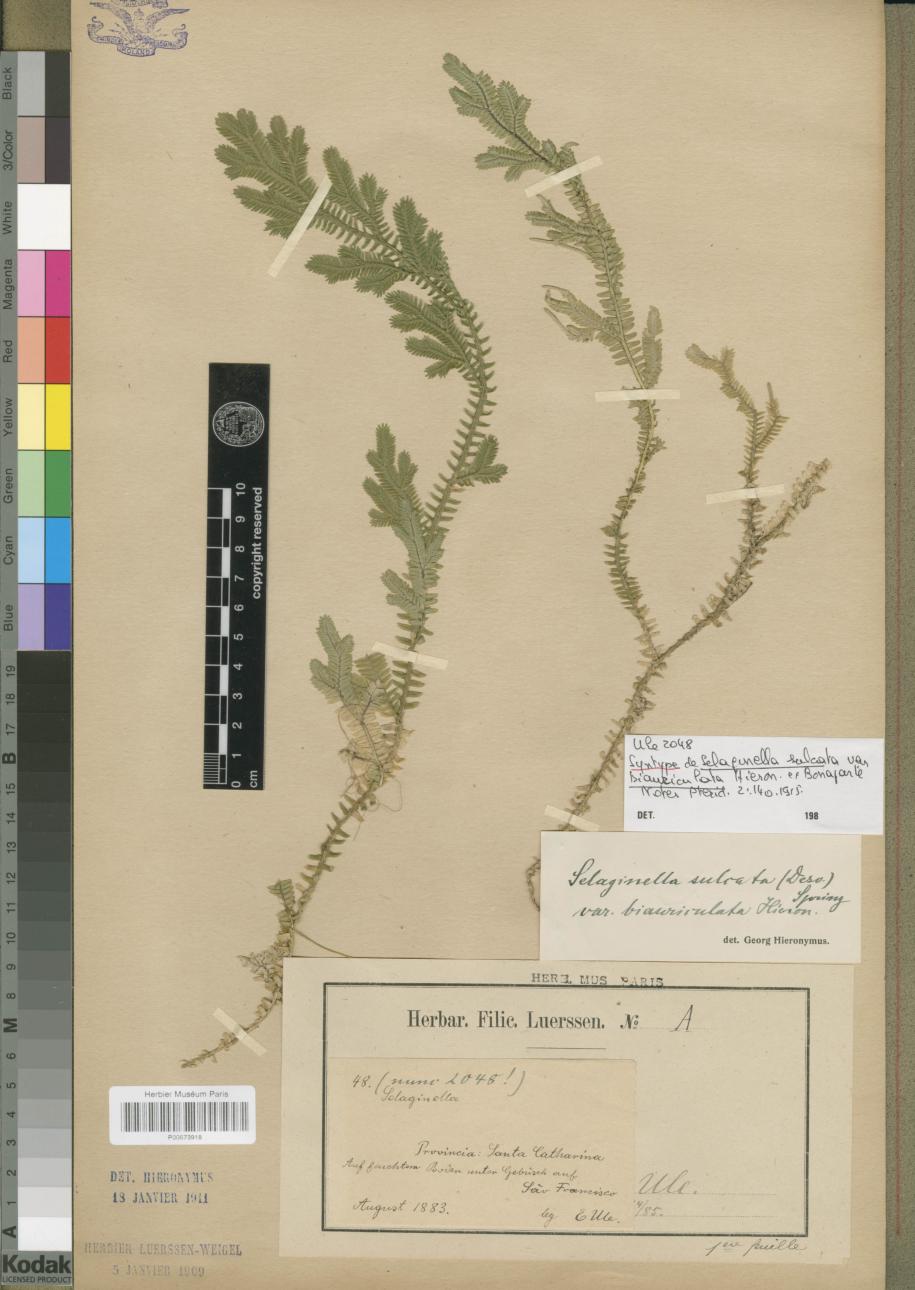 POLAND
Black
3/Color
White
Magenta
Red
Yellow
Green
Cyan
Blue
Kodak
LICENSED PRODUCT
A 1 2 3 4 5 6 M 8 9 10 11 12 13 14 15 B 17 18 19
0 1 2 3 4 5 6 7 8 9 10
cm
copyright reserved
Ule 2048
Syntype de Selaginella sulcata var
biauriculata Hieron. ex Bonaparte
Notes Pterid. 2:140.1915.
DET. 198
Selaginella sulcata (Desv.)
Spring
var. biauriculata Hieron.
det. Georg Hieronymus.
HERB. MUS PARIS
Herbar. Filic. Luerssen. № A
48. (nunc 2048!)
Selaginella
Provincia: Santa Catharina
Auf feuchtem Boden unter Gebüsch auf
São Francisco
August 1883. leg E Ule.
Ule.
4/85.
1ère feuille
Herbier Muséum Paris
P00673918
DET. HIERONYMUS
18 JANVIER 1911
HERBIER LUERSSEN-WEIGEL
5 JANVIER 1909